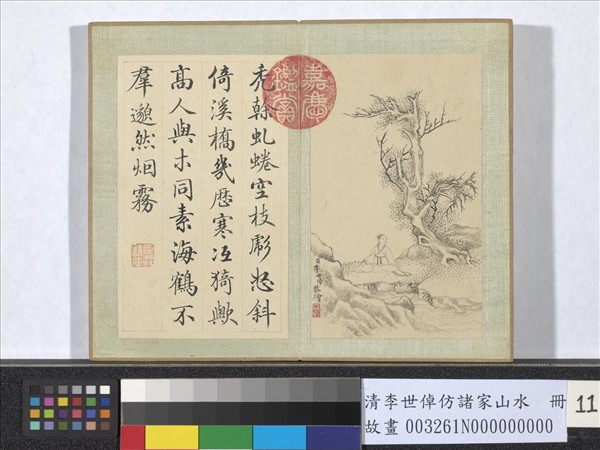 禿榦虬蜷空枝彫
倚溪橋幾歷寒冱猗歟
高人與木同素海鶴不
羣邈然烟霧
嘉慶鑑賞
清李世倬仿諸家山水 冊
故畫 003261N000000000
11